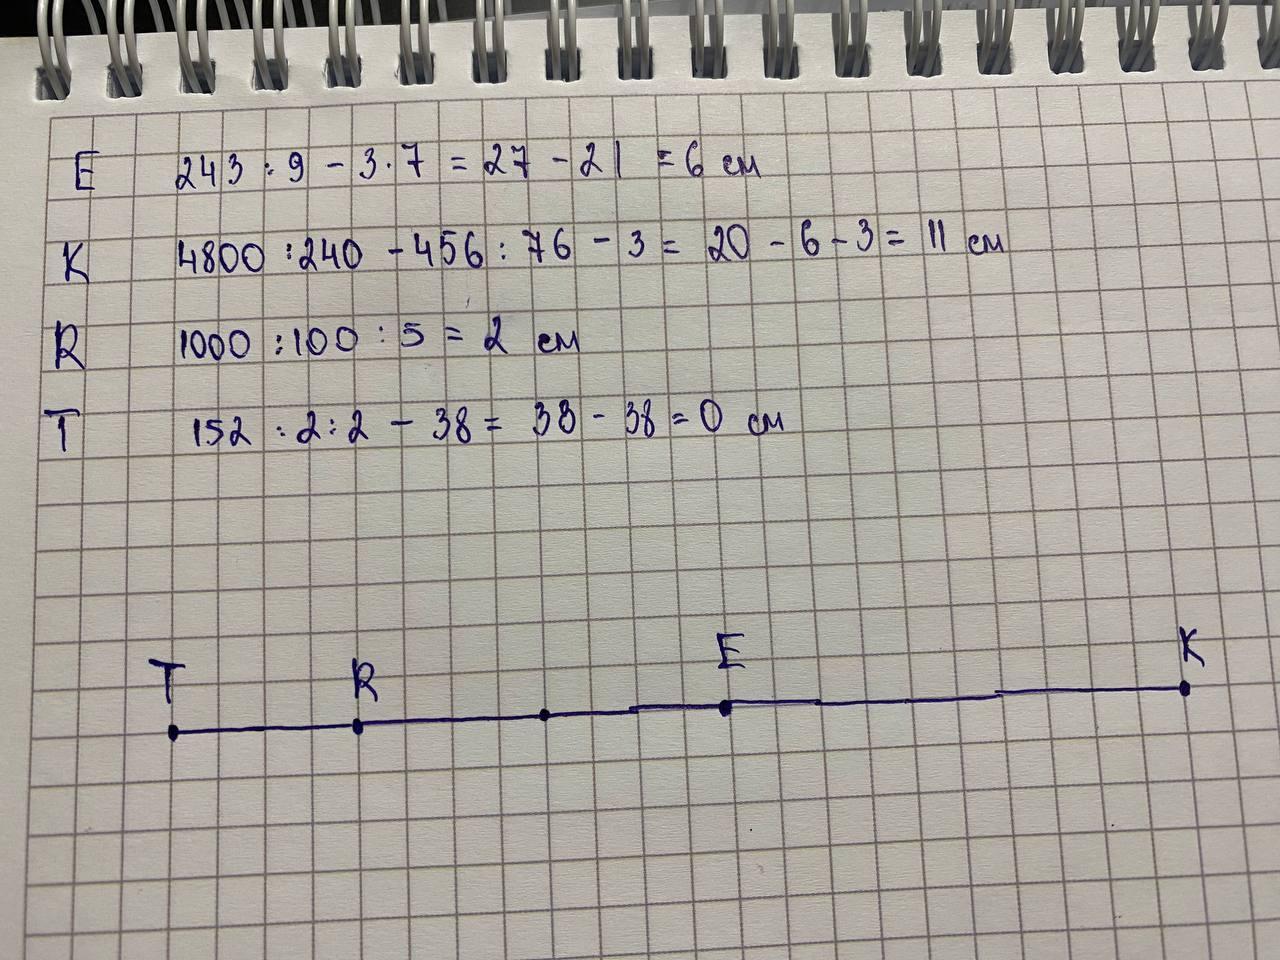 E 243 : 9 - 3 · 7 = 27 - 21 = 6 см
K 4800 : 240 - 456 : 76 - 3 = 20 - 6 - 3 = 11 см
R 1000 : 100 : 5 = 2 см
T 152 : 2 : 2 - 38 = 38 - 38 = 0 см
T R E K